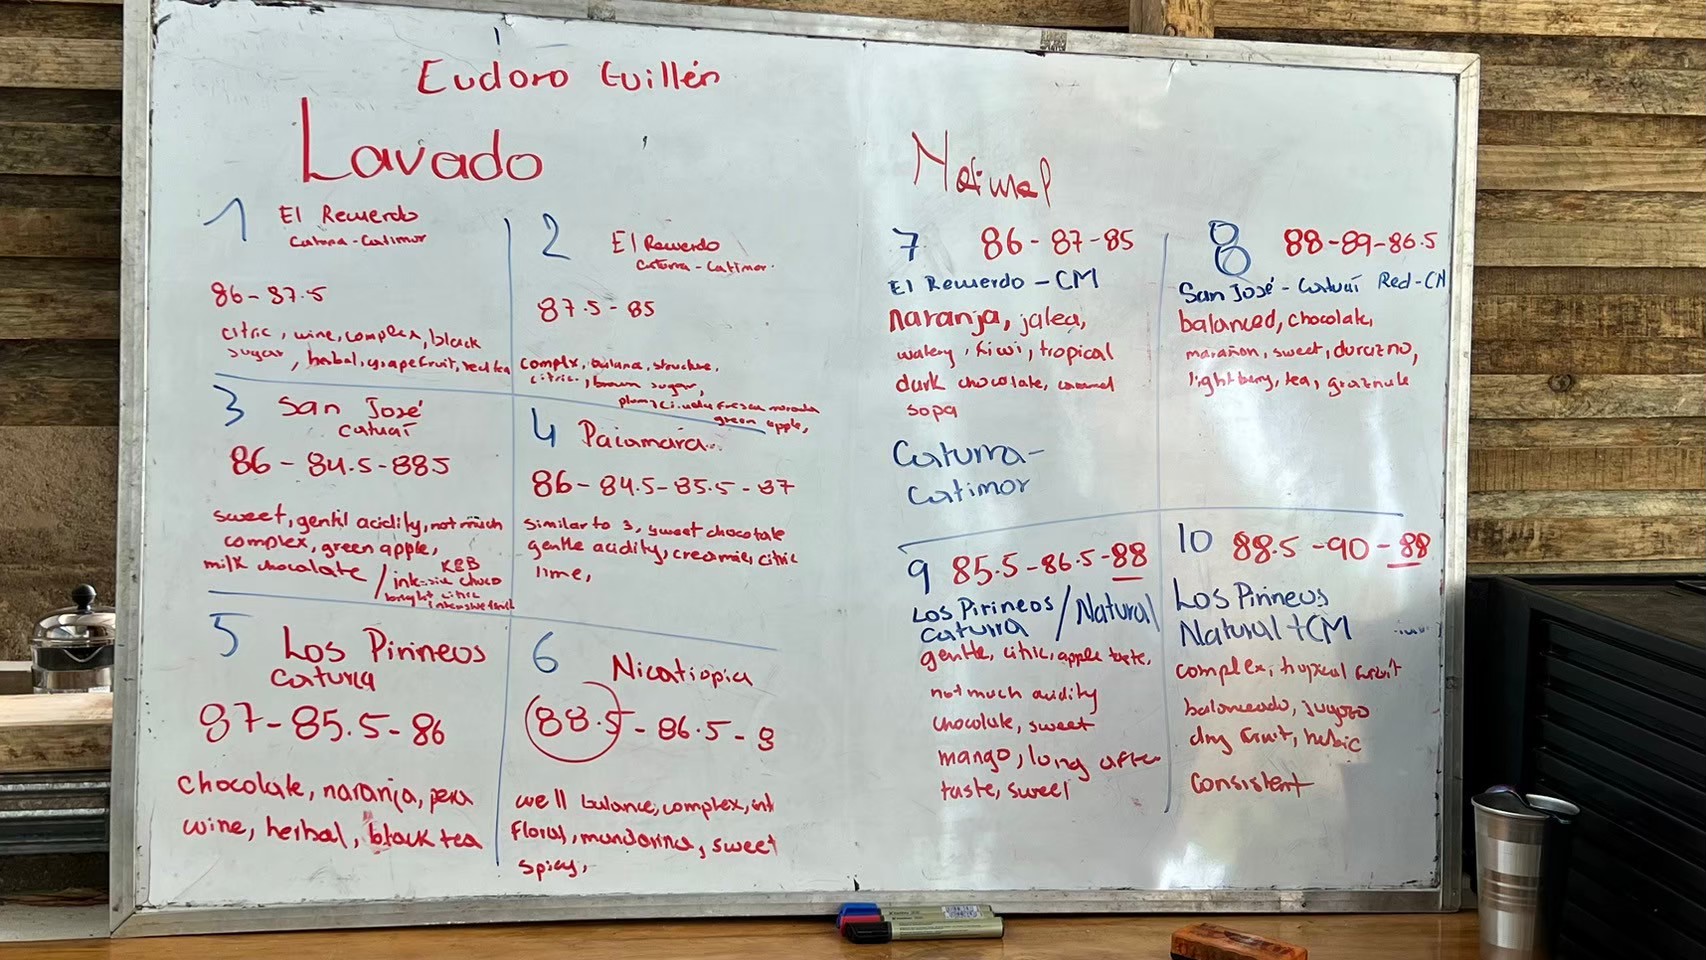 Eudoro Guillén
Lavado
1 El Recuerdo
Caturra-Catimor
86-87.5
citric, wine, complex, black
sugar, herbal, grapefruit, red tea
2 El Recuerdo
Caturra-Catimor.
87.5-85
complex, balance, structure,
citric, brown sugar,
morada
green apple,
3 San José
catuaí
86-84.5-88.5
sweet, gentil acidity, not much
complex, green apple,
milk chocolate /
choco
bright citric
4 Pacamara
86-84.5-85.5-87
similar to 3, sweet chocolate
gentle acidity, creamie, citric
lime,
5 Los Pirineos
caturra
87-85.5-86
chocolate, naranja, pera
wine, herbal, black tea
6 Nicatiopia
88.5-86.5-8
well balance, complex, int
floral, mandarina, sweet
spicy,
Natural
7 86-87-85
El Recuerdo-CM
naranja, jalea,
watery, kiwi, tropical
dark chocolate, caramel
sopa
Caturra-
Catimor
8 88-89-86.5
San José-Catuaí Red-CM
balanced, chocolate,
marañon, sweet, durazno,
light berry, tea,
9 85.5-86.5-88
Los Pirineos / Natural
caturra
gentle, citric, apple taste,
not much acidity
chocolate, sweet
mango, long after
taste, sweet
10 88.5-90-88
Los Pirineos
Natural+CM
complex, tropical fruit
balanceado, jugoso
dry fruit,
consistent